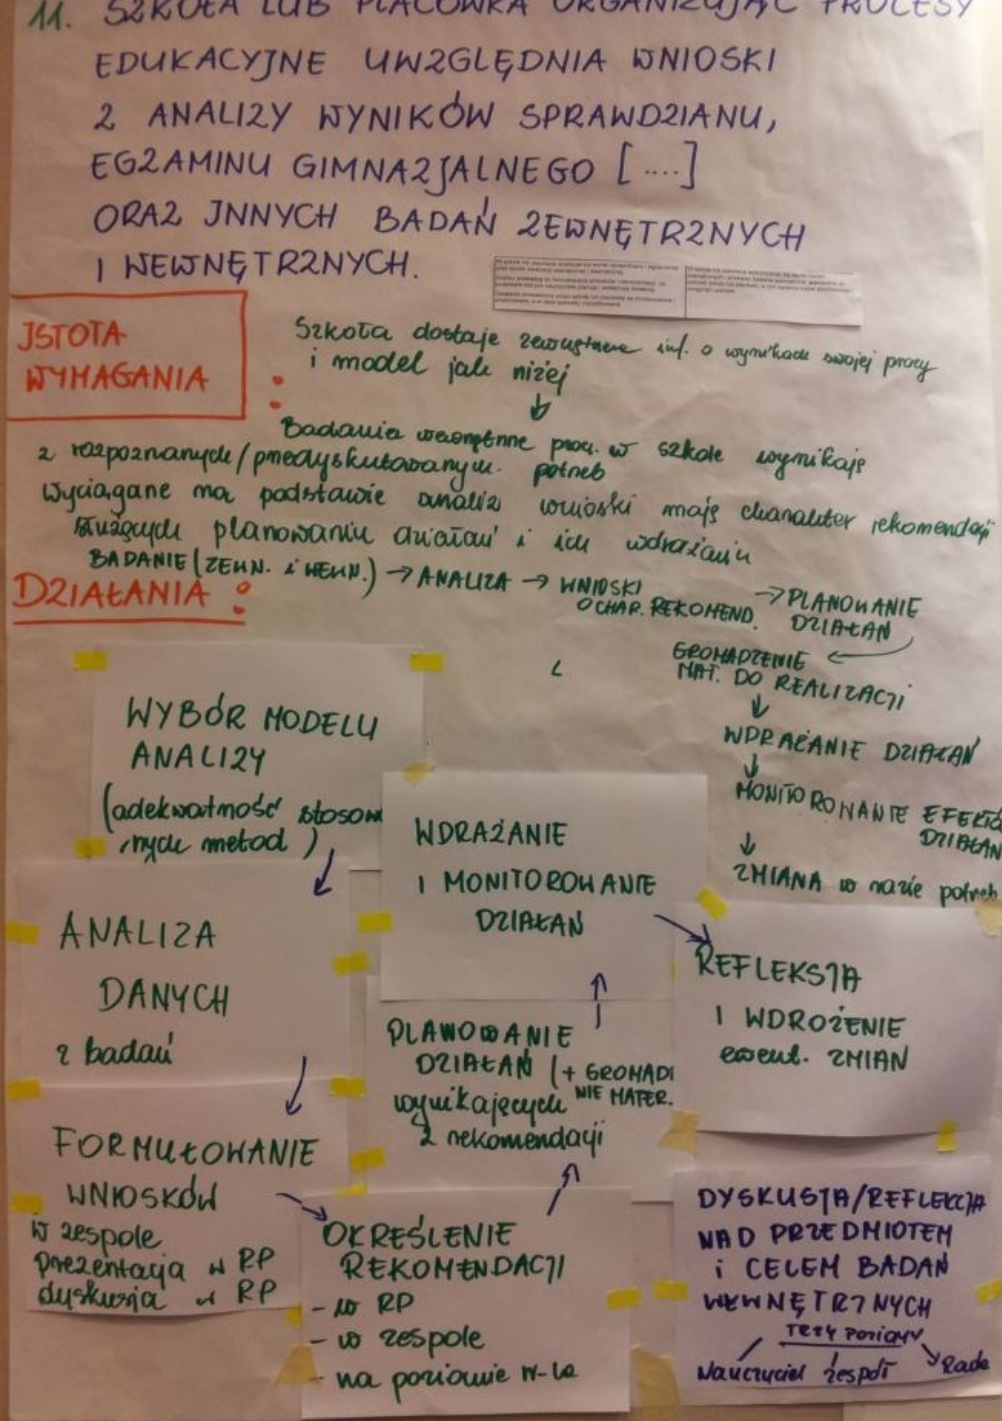 11. SZKOŁA LUB PLACÓWKA ORGANIZUJĄC PROCESY
EDUKACYJNE UWZGLĘDNIA WNIOSKI
Z ANALIZY WYNIKÓW SPRAWDZIANU,
EGZAMINU GIMNAZJALNEGO [....]
ORAZ INNYCH BADAŃ ZEWNĘTRZNYCH
I WEWNĘTRZNYCH.
ISTOTA
WYMAGANIA :
Szkoła dostaje zewnętrzne inf. o wynikach swojej pracy
i model jak niżej
↓
Badania wewnętrzne prow. w szkole wynikają
z rozpoznanych/przedyskutowanych potrzeb
Wyciągane na podstawie analiz wnioski mają charakter rekomendacji
służących planowaniu działań i ich wdrażaniu
BADANIE (ZEWN. i WEWN.) → ANALIZA → WNIOSKI
O CHAR. REKOMEND. → PLANOWANIE
DZIAŁAŃ
DZIAŁANIA :
GROMADZENIE
MAT. DO REALIZACJI
↓
WDRAŻANIE DZIAŁAŃ
↓
MONITOROWANIE EFEKTÓ
DZIAŁAŃ
↓
ZMIANA w razie potrzeb
WYBÓR MODELU
ANALIZY
(adekwatność stosow
nych metod)
ANALIZA
DANYCH
z badań
FORMUŁOWANIE
WNIOSKÓW
W zespole
prezentacja w RP
dyskusja w RP
OKREŚLENIE
REKOMENDACJI
- w RP
- w zespole
- na poziomie n-la
PLANOWANIE
DZIAŁAŃ (+ GROMADZ
wynikających NIE MATER.
z rekomendacji
WDRAŻANIE
I MONITOROWANIE
DZIAŁAŃ
REFLEKSJA
I WDROŻENIE
ewent. ZMIAN
DYSKUSJA/REFLEKCJA
NAD PRZEDMIOTEM
i CELEM BADAŃ
WEWNĘTRZNYCH
TRZY POZIOMY
Nauczyciel zespół Rada